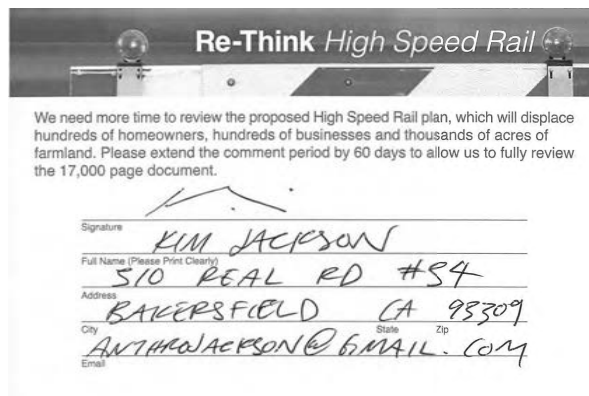 Re-Think High Speed Rail
We need more time to review the proposed High Speed Rail plan, which will displace
hundreds of homeowners, hundreds of businesses and thousands of acres of
farmland. Please extend the comment period by 60 days to allow us to fully review
the 17,000 page document.
Signature
KIM JACKSON
Full Name (Please Print Clearly)
510 REAL RD #54
Address
BAKERSFIELD CA 93309
City State Zip
ANTHROJACKSON@GMAIL.COM
Email